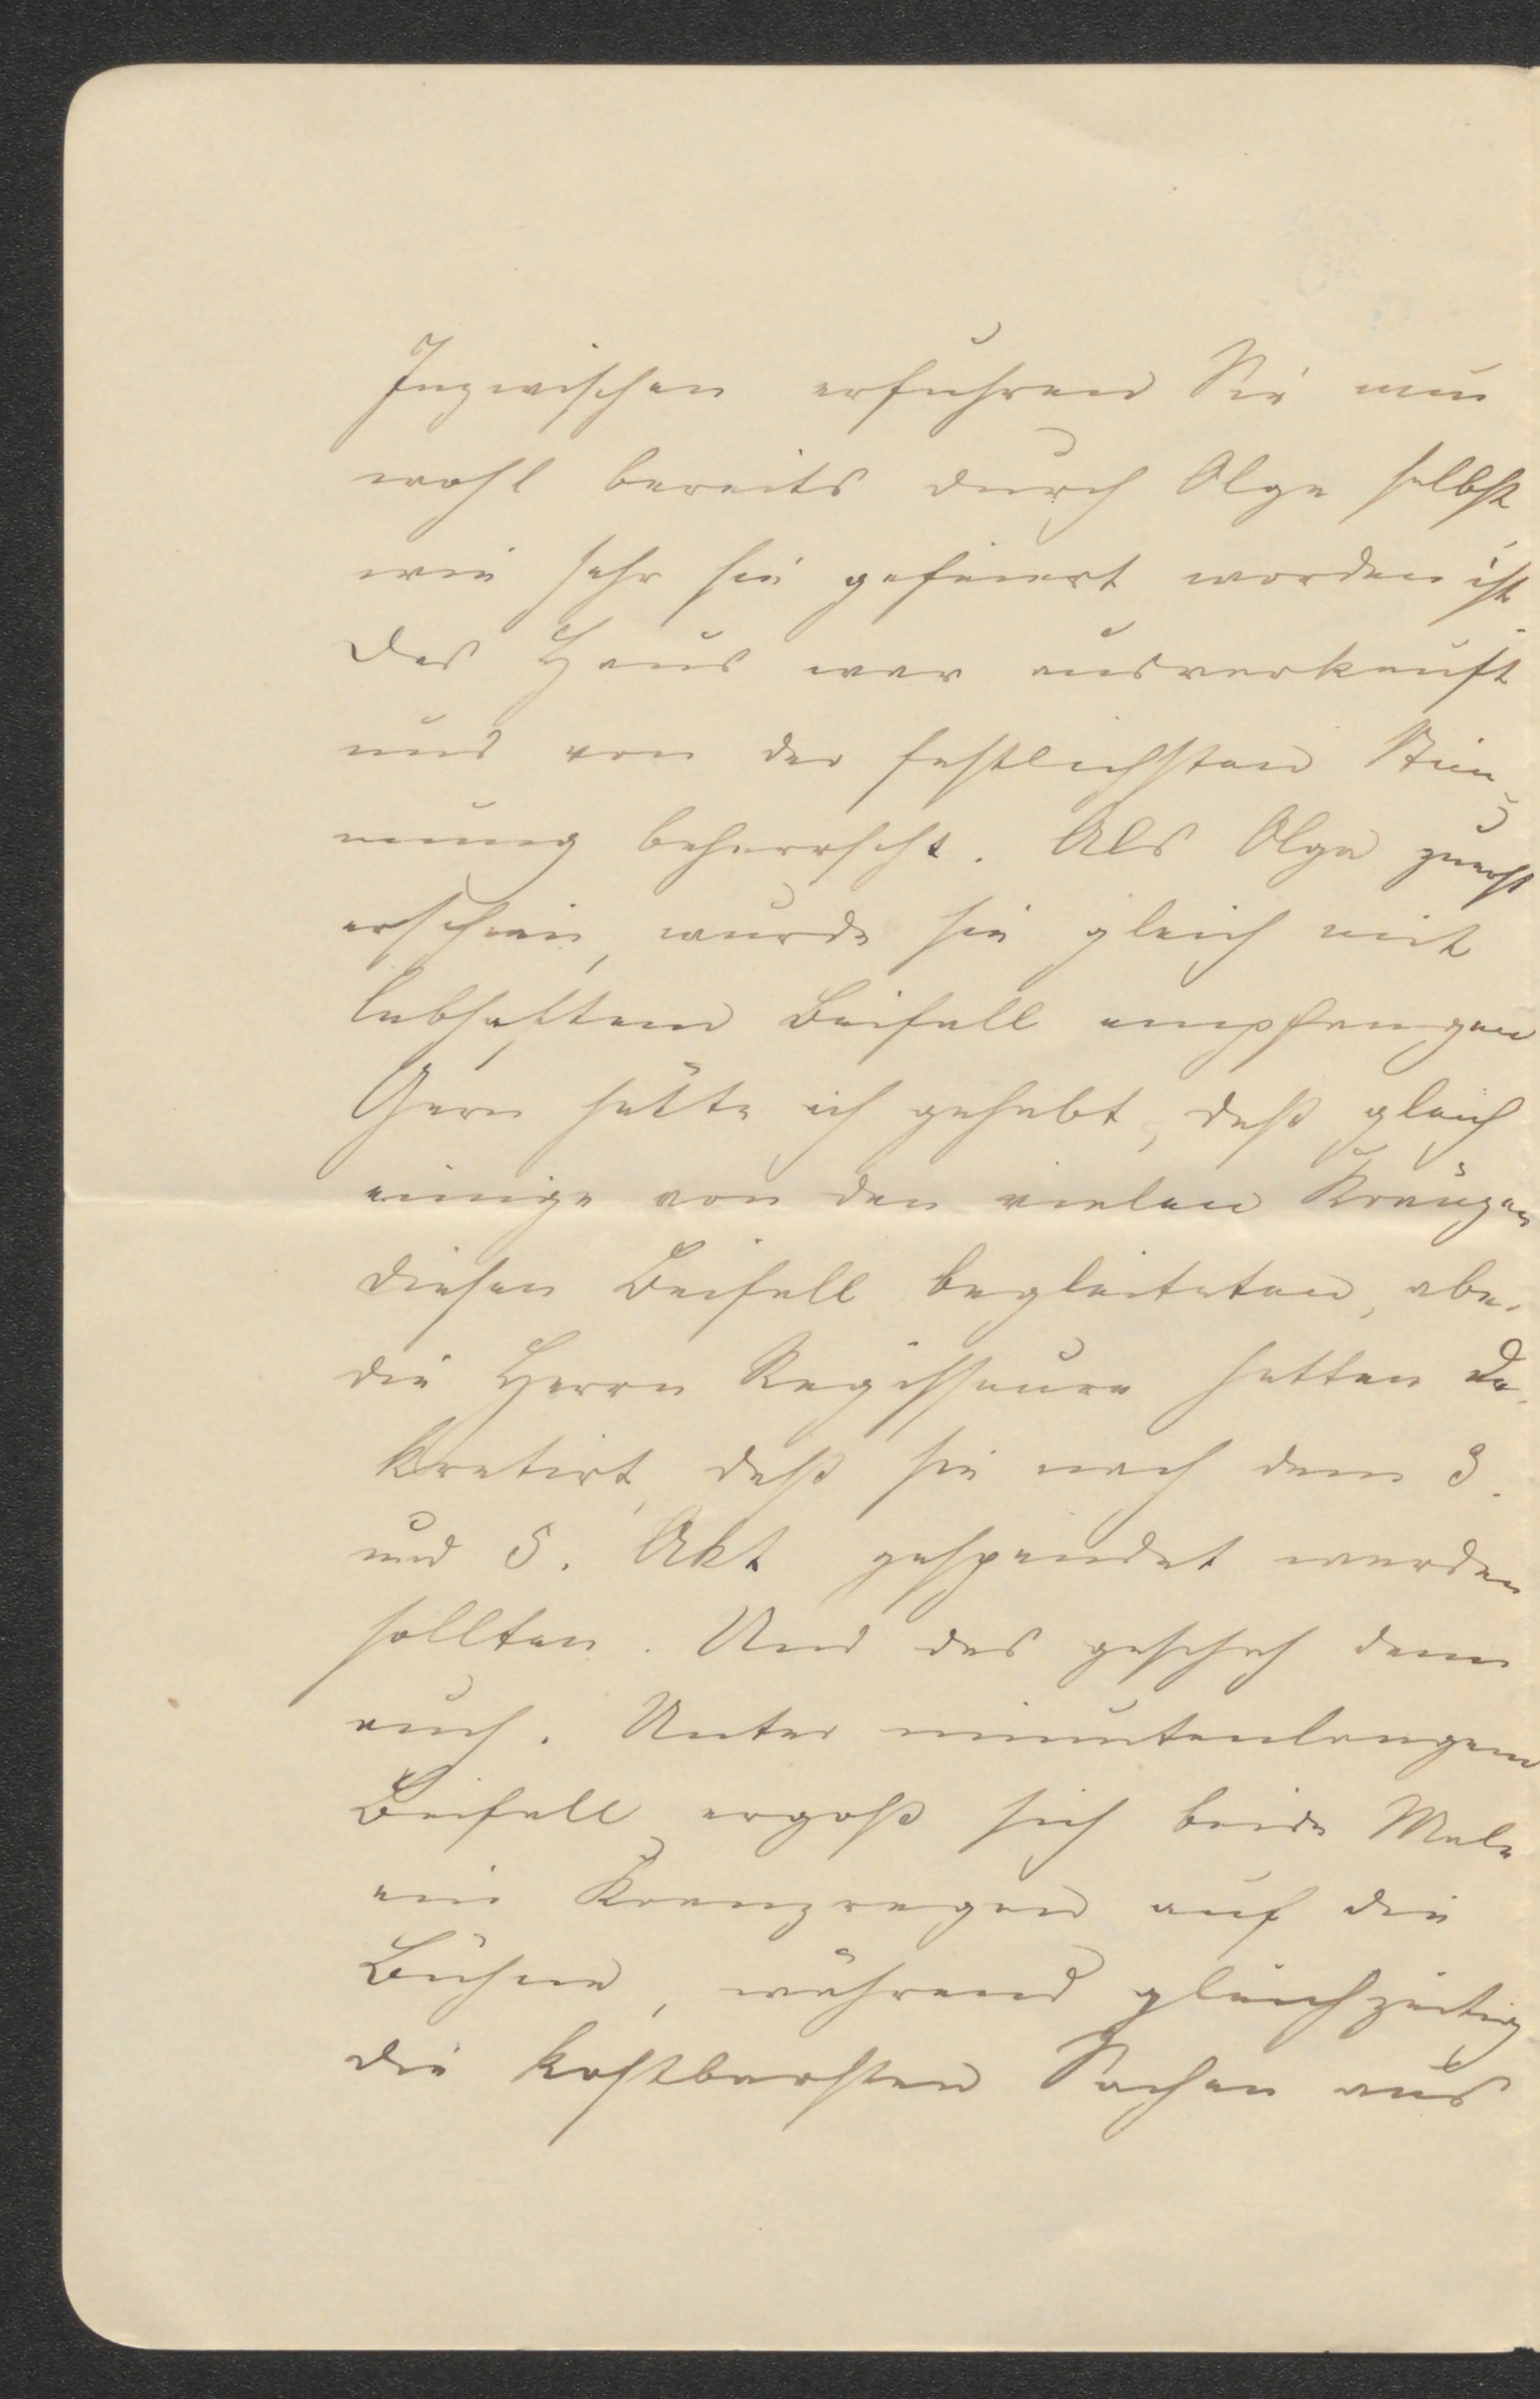 Inzwischen erfuhren Sie nun
wohl bereits durch Olga selbst
wie sehr sie gefeiert worden ist.
Das Haus war ausverkauft
und von der festlichsten Stim-
mung beherrscht. Als Olga zuerst
erschien, wurde sie gleich mit
lebhaftem Beifall empfangen
Gern hätte ich gehabt, daß gleich
einige von den vielen Kränzen
diesen Beifall begleiteten, aber
die Herrn Regisseure hatten de-
kretirt, daß sie nach dem 3.
und 5. Akt gespendet werden
sollten. Und das geschah denn
auch. Unter minutenlangem
Beifall ergoß sich beide Male
ein Kranzregen auf die
Bühne, während gleichzeitig
die kostbarsten Sachen aus